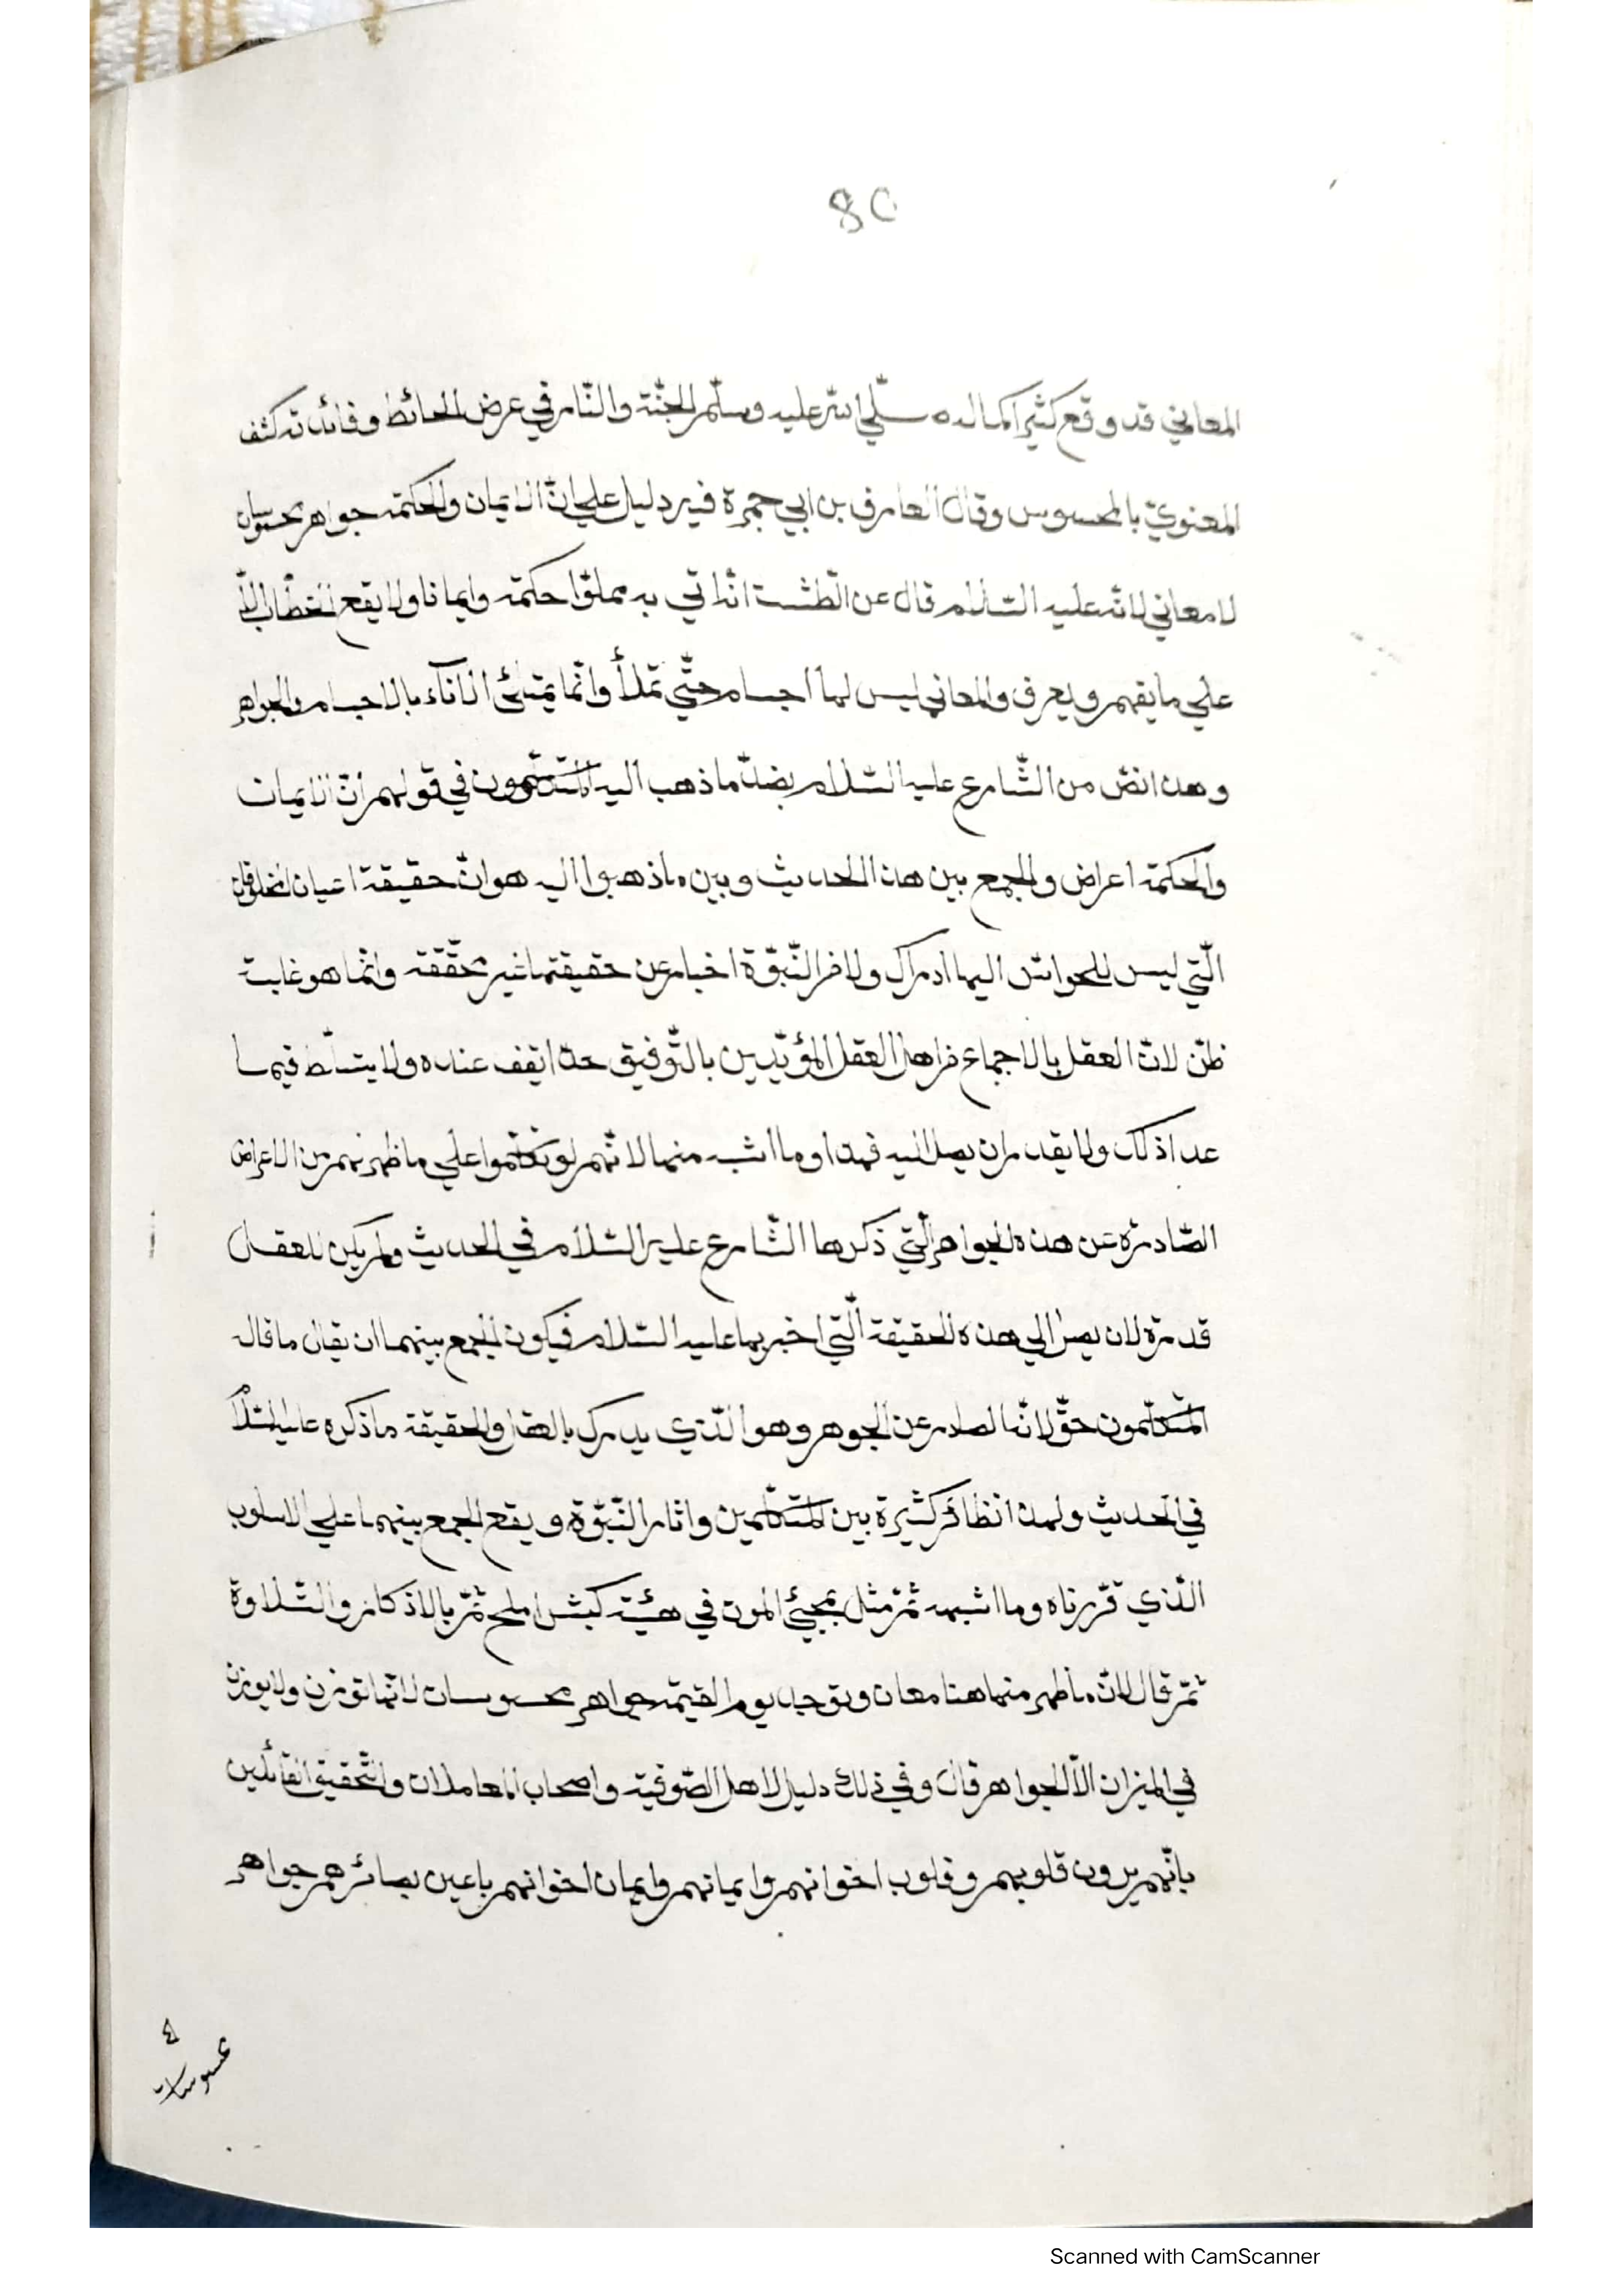 80
المعاني قد وقع كثيرا كما له سلّي الله عليه وسلّم الجنّة والنّار في عرض الحائط وفائدته كشف
المعنويّ بالمحسوس وقال العارف بن ابي جمرة فيه دليل علي انّ الايمان والحكمة جواهر محسوسات
لا معاني لانّه عليه السّلام قال عن الطّشت انّه اتي به مملوّا حكمة وايمانا ولا يقع الخطاب الاّ
علي ما يفهم ويعرف والمعاني ليس لها اجسام حتّي تملأ وانّما يمتلئ الاناء بالاجسام والجواهر
وهذا نصّ من الشّارع عليه السّلام بضدّ ما ذهب اليه المتكلّمون في قولهم انّ الايمان
والحكمة اعراض والجمع بين هذا الحديث وبين ما ذهبوا اليه هو انّ حقيقة اعيان المخلوقات
الّتي ليس للحواسّ اليها ادراك ولا من النّبوّة اخبار عن حقيقتها غير محقّقة وانّما هو غابت
ظنّ لانّ العقل بالاجماع من اهل العقل المؤيّدين بالتّوفيق حدّا يقف عنده ولا يتسلّط فيما
عدا ذلك ولا يقدر ان يصل اليه فهذا وما اشبه منها لانّهم لو تكلّموا علي ما ظهر لهم من الاعراض
الصّادرة عن هذه الجواهر الّتي ذكرها الشّارع عليه السّلام في الحديث ولم يكن للعقل
قدرة لان يصل الي هذه الحقيقة الّتي اخبر بها عليه السّلام فيكون الجمع بينهما ان يقال ما قاله
المتكلّمون حقّ لانّه الصادر عن الجوهر وهو الّذي يدرك بالعقل والحقيقة ما ذكره عليه السّلام
في الحديث ولهذا نظائر كثيرة بين المتكلّمين واثار النّبوّة ويقع الجمع بينهما علي الاسلوب
الّذي قرّرناه وما اشبهه ثمّ مثّل بمجيئ الموت في هيئة كبش املح ثمّ بالاذكار والتّلاوة
ثمّ قال لانّ ما ظهر منها هنا معان وتوجد يوم القيمة جواهر محسوسات لانّها توزن ولا يوزن
في الميزان الاّ الجواهر قال وفي ذلك دليل لاهل الصّوفيّة واصحاب المعاملات والتّحقيق القائلين
بانّهم يرون قلوبهم وقلوب اخوانهم وايمانهم وايمان اخوانهم باعين بصائرهم جواهر
محسوسات
Scanned with CamScanner